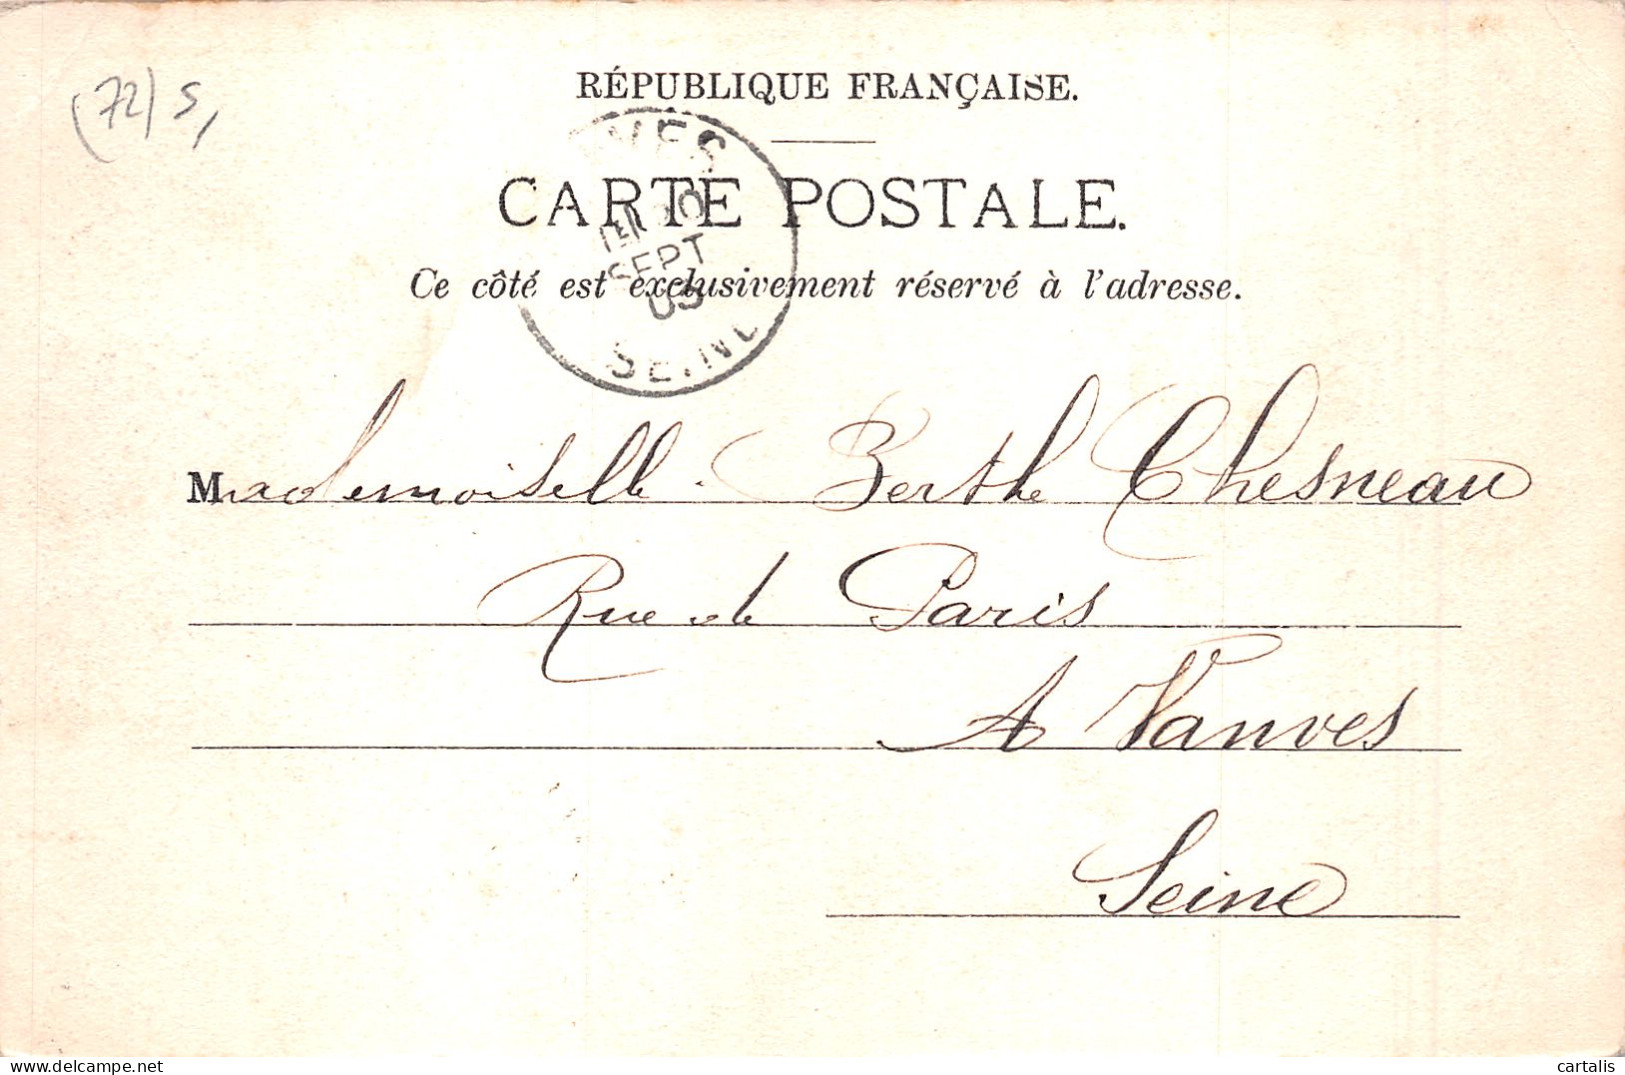 (72) S,
RÉPUBLIQUE FRANÇAISE.
CARTE POSTALE.
SEPT
SEINE
Ce côté est exclusivement réservé à l'adresse.
Mademoiselle. Berthe Chesneau
Rue de Paris
A Vanves
Seine
cartalis
delcampe.net